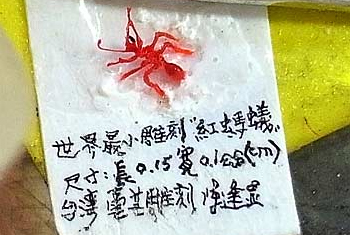 世界最小雕刻"紅螞蟻"
尺寸:長0.15寬0.1公分(cm)
台灣 雕刻 陳逢顯